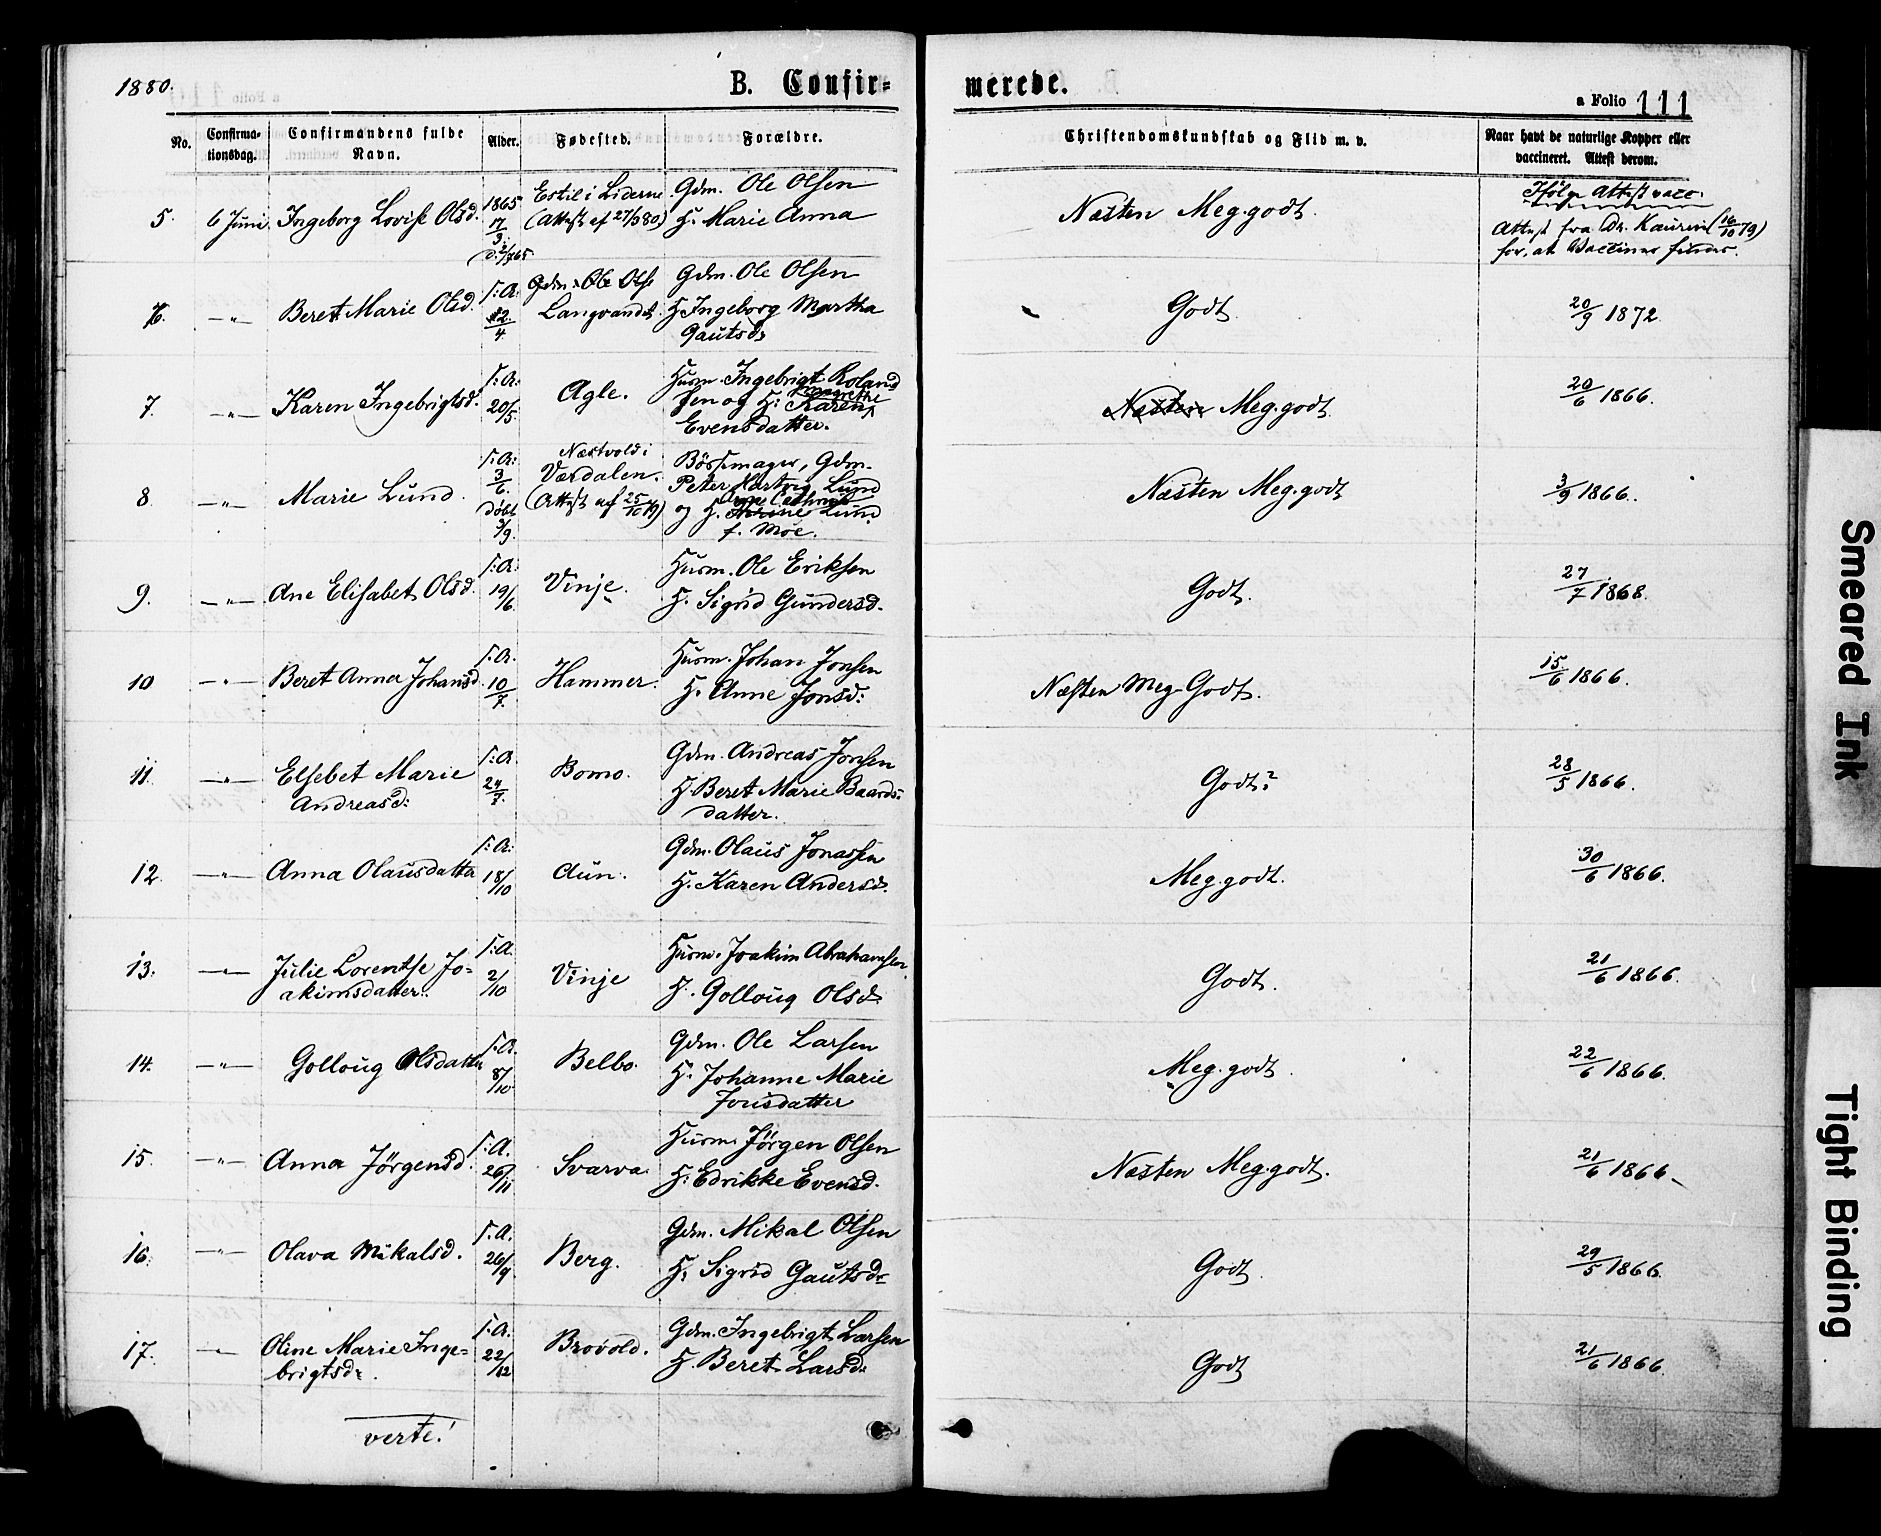 1880.
B. Confir-
merede.
a Folio 111
No.
Confirma-
tionsdag.
Confirmandens fulde
Navn.
Alder.
Fødested.
Forældre.
Christendomskundskab og Flid m. v.
Naar havt de naturlige Kopper eller
vaccineret. Attest derom.
5. 6 Juni. Ingeborg Lovise Olsd.
1865
17/3
d. 2/7 65
Estil i Liderne
(Attest af 27/3 80)
Gdm. Ole Olsen
H. Marie Anna
Næsten Meg. godt.
Ifølge Attest vacc.
Attest fra Dr. Kaurin (16/10 79)
for, at Vaccinar findes.
6. —"— Beret Marie Olsd.
s: A:
12/4
Gdm. Ole Olse
Langvandet.
Gdm. Ole Olsen
H. Ingeborg Martha
Gautsd:
Godt.
20/9 1872.
7. —"— Karen Ingebrigtsd.
s: A:
20/5
Agle.
Husm. Ingebrigt Roland
sen og H: Karen Margrethe
Evensdatter.
Næsten Meg. godt.
20/6 1866.
8 —"— Marie Lund.
s: A:
3/6.
Døbt
3/9.
Næstvold i
Værdalen.
(Attest af 25/10 79)
Børsemager, Gdm.
Peter Hartvig Lund
og H. Lund
f. Moe.
Næsten Meg. godt
3/9 1866.
9. —"— Ane Elisabet Olsd.
s: A:
19/6.
Vinje.
Husm. Ole Eriksen
H. Sigrid Gundersd.
Godt.
27/7 1868.
10 —"— Beret Anna Johansd.
s: A.
10/7.
Hammer.
Husm. Johan Jonsen
H. Anne Jonsd:
Næsten Meg Godt.
15/6 1866.
11. —"— Elsebet Marie
Andreasd:
s: A
24/7.
Bomo.
Gdm. Andreas Jonsen
H. Beret Marie Baards-
datter.
Godt?
28/5 1866.
12. —"— Anna Olausdatter
s: A:
18/10
Aun.
Gdm. Olaus Jonassen
H. Karen Andersd.
Meg. godt.
30/6 1866.
13. —"— Julie Lorentse Jo-
akimsdatter.
s: A.
2/10
Vinje
Husm. Joakim Abrahamsen
H. Golloug Olsd.
Godt.
21/6 1866.
14. —"— Golloug Olsdatter
s: A.
8/10
Belbo.
Gdm. Ole Larsen
H. Johanne Marie
Jonsdatter
Meg. godt.
22/6 1866.
15. —"— Anna Jörgensd.
s: A.
26/11
Svarva.
Husm. Jörgen Olsen
H: Edrikke Evensd.
Næsten Meg. godt.
21/6 1866.
16. —"— Olava Mikalsd.
s: A.
26/9
Berg.
Gdm. Mikal Olsen
H. Sigrid Gautsd:
Godt.
29/5 1866.
17. —"— Oline Marie Inge-
brigtsd:
s: A.
22/12
Brovold.
Gdm. Ingebrigt Larsen
H. Beret Larsd:
Godt
21/6 1866.
verte!
Smeared Ink
Tight Binding